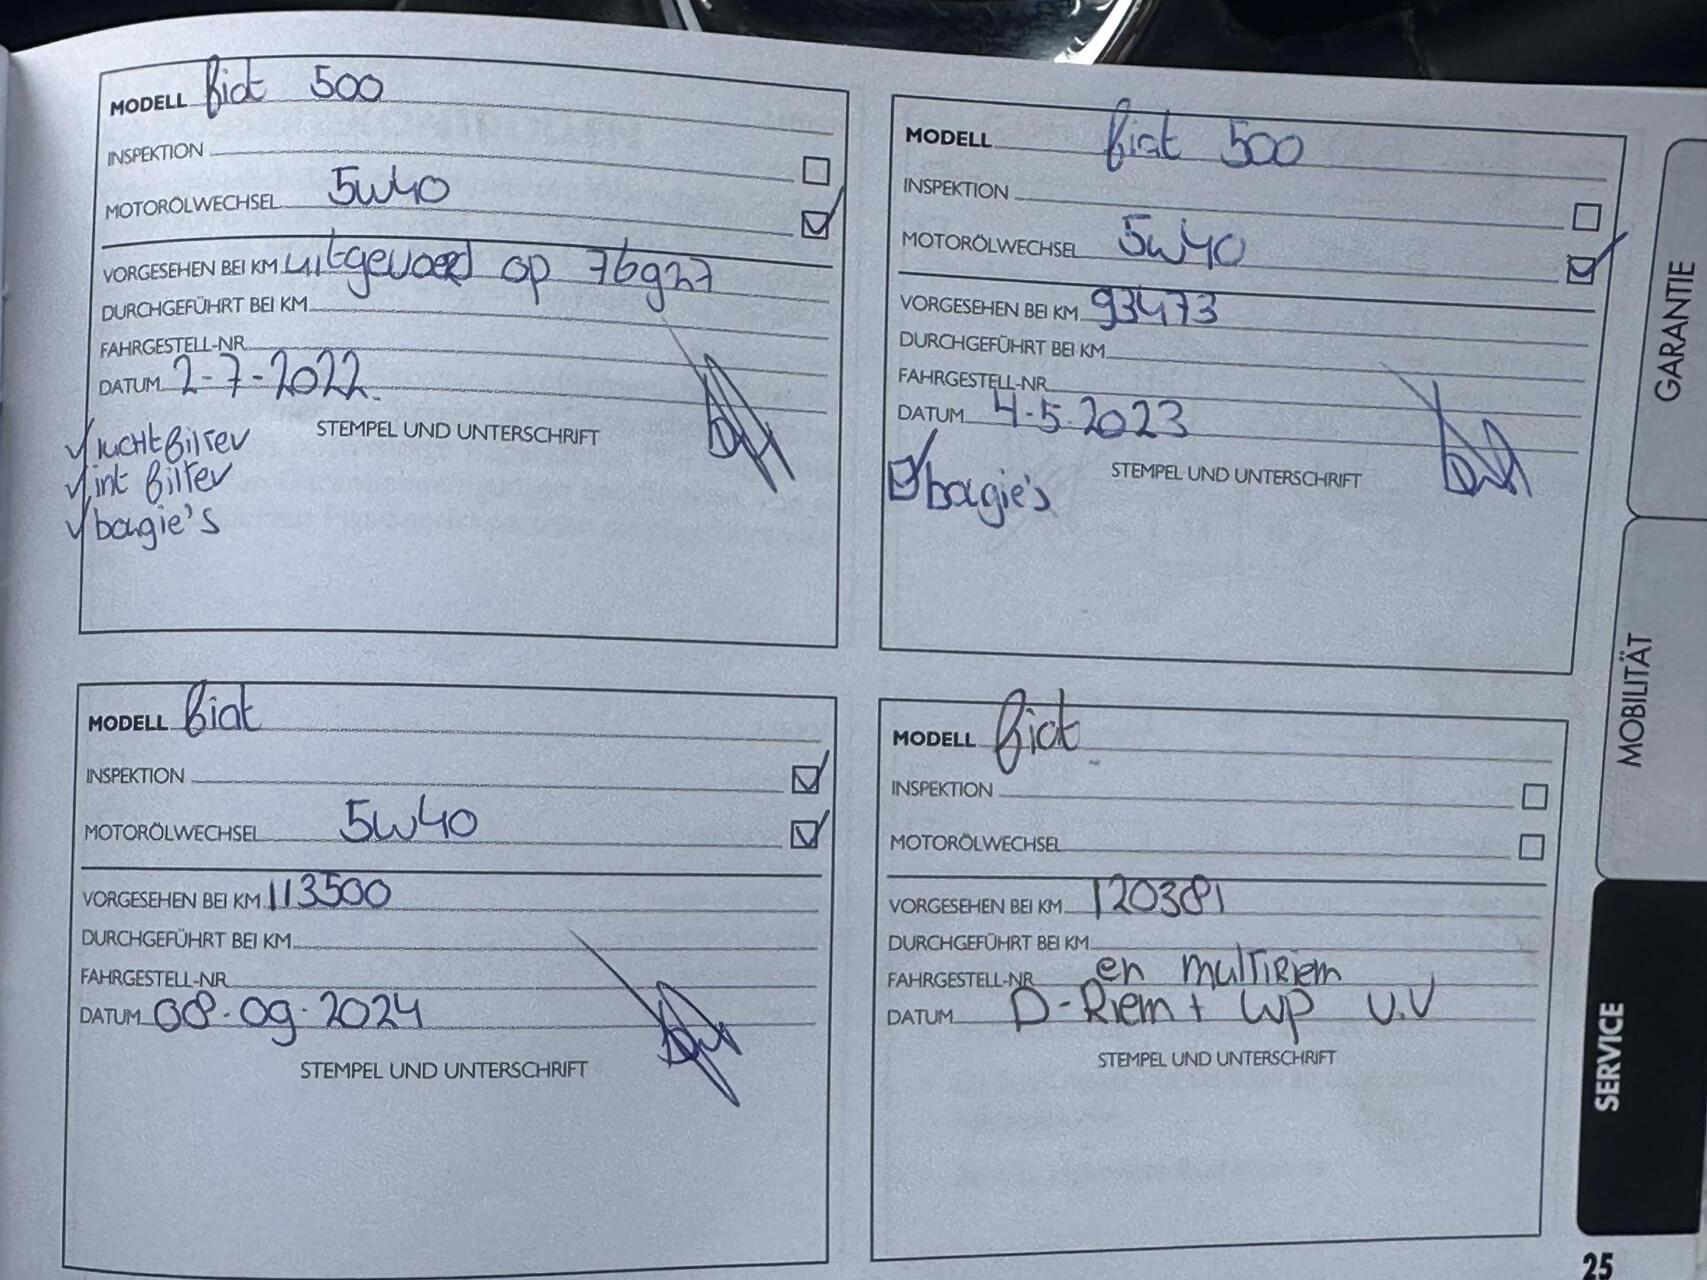 MODELL fiat 500
INSPEKTION
MOTORÖLWECHSEL 5W40
VORGESEHEN BEI KM uitgevoerd op 76927
DURCHGEFÜHRT BEI KM
FAHRGESTELL-NR
DATUM 2-7-2022.
STEMPEL UND UNTERSCHRIFT
luchtfilter
int filter
bougie's
MODELL fiat 500
INSPEKTION
MOTORÖLWECHSEL 5W40
VORGESEHEN BEI KM 93473
DURCHGEFÜHRT BEI KM
FAHRGESTELL-NR
DATUM 4-5-2023
STEMPEL UND UNTERSCHRIFT
bougie's
MODELL fiat
INSPEKTION
MOTORÖLWECHSEL 5W40
VORGESEHEN BEI KM 113500
DURCHGEFÜHRT BEI KM
FAHRGESTELL-NR
DATUM 08-09-2024
STEMPEL UND UNTERSCHRIFT
MODELL fiat
INSPEKTION
MOTORÖLWECHSEL
VORGESEHEN BEI KM 120381
DURCHGEFÜHRT BEI KM
FAHRGESTELL-NR en multiRiem
DATUM D-Riem + wp v.v
STEMPEL UND UNTERSCHRIFT
GARANTIE
MOBILITÄT
SERVICE
25